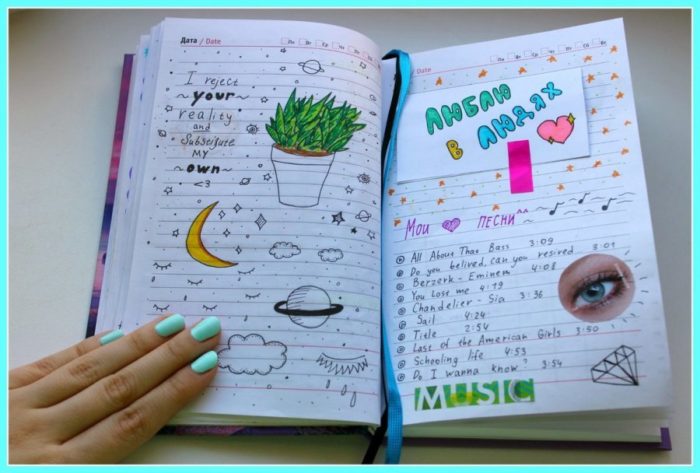 Дата / Date
Пн Вт Ср Чт Пт Сб Вс
I reject
~ your ~
reality
and
Substitute
MY
~ own ~
<3
/ Date
ЛЮБЛЮ
В ЛЮДЯХ
Мои ПЕСНИ
All About That Bass 3:09
Do you belived, can you resived 3:01
Berzerk - Eminem 4:08
You Lose me 4:19
Chandelier - Sia 3:36
Sail 4:24
Title 2:54
Last of the American Girls 3:50
Schooling life 4:53
Do I wanna know? 3:54
MUSIC